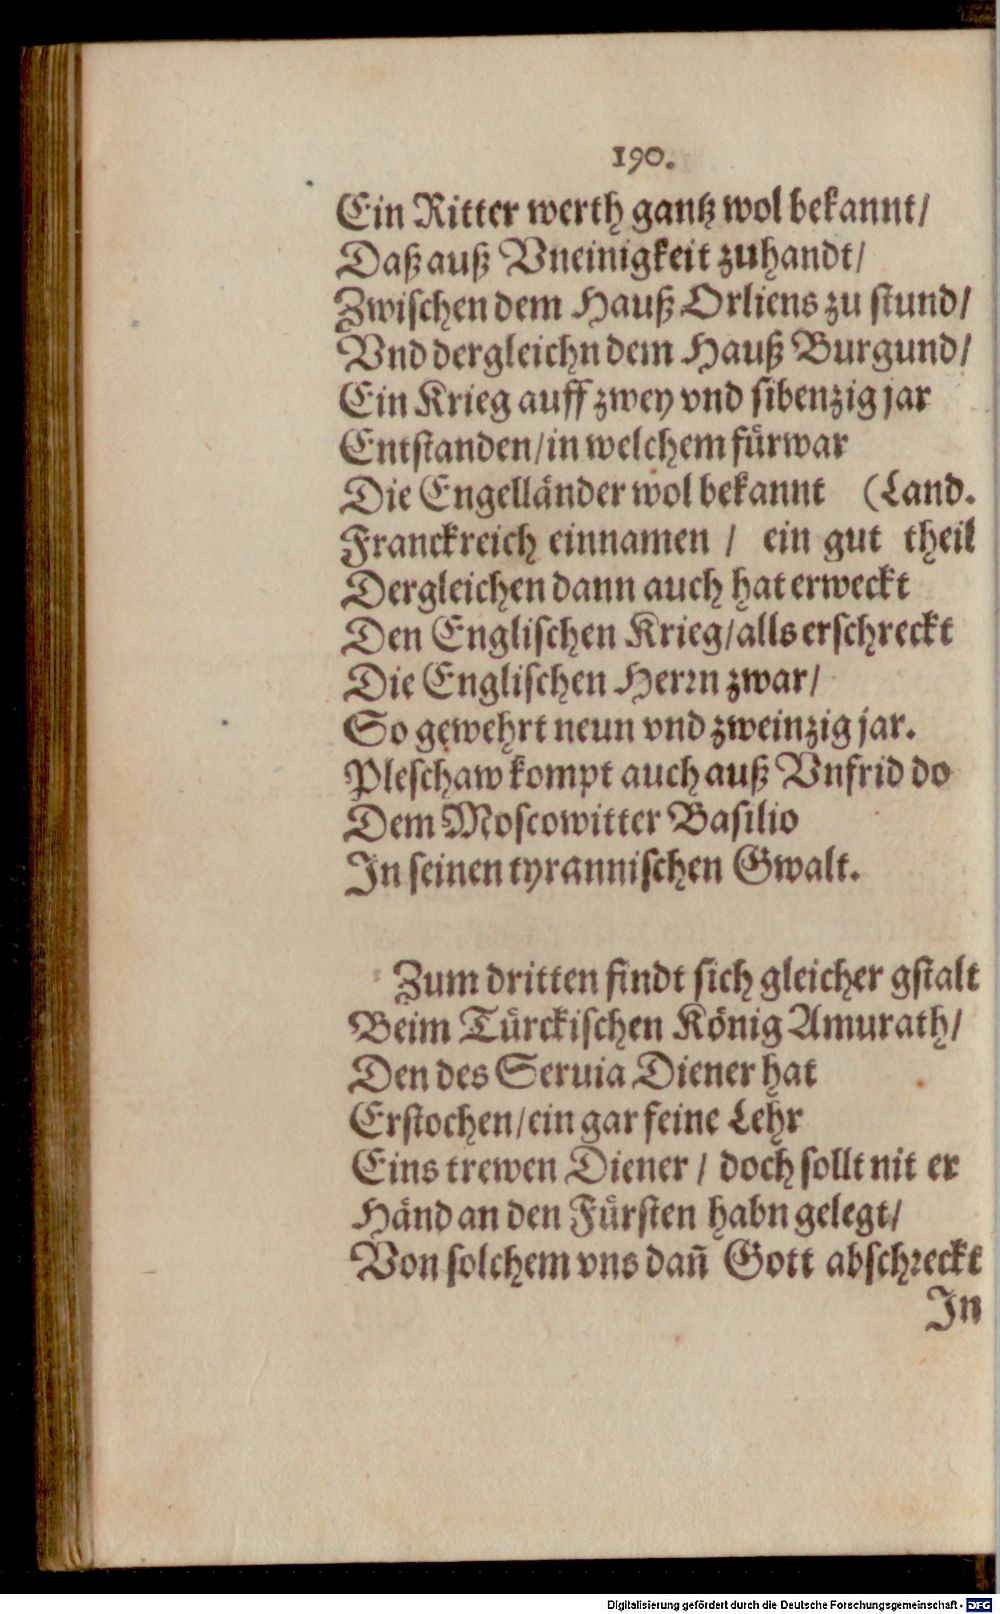 190.
Ein Ritter werth gantz wol bekannt/
Daß auß Vneinigkeit zuhandt/
Zwischen dem Hauß Orliens zu stund/
Vnd dergleichn dem Hauß Burgund/
Ein Krieg auff zwey vnd sibenzig jar
Entstanden/in welchem fürwar
Die Engelländer wol bekannt (Land.
Franckreich einnamen / ein gut theil
Dergleichen dann auch hat erweckt
Den Englischen Krieg/alls erschreckt
Die Englischen Herrn zwar/
So gewehrt neun vnd zweinzig jar.
Pleschaw kompt auch auß Vnfrid do
Dem Moscowitter Basilio
In seinen tyrannischen Gwalt.
Zum dritten findt sich gleicher gstalt
Beim Türckischen König Amurath/
Den des Seruia Diener hat
Erstochen/ein gar feine Lehr
Eins trewen Diener / doch sollt nit er
Händ an den Fürsten habn gelegt/
Von solchem vns dañ Gott abschreckt
In
Digitalisierung gefördert durch die Deutsche Forschungsgemeinschaft - DFG